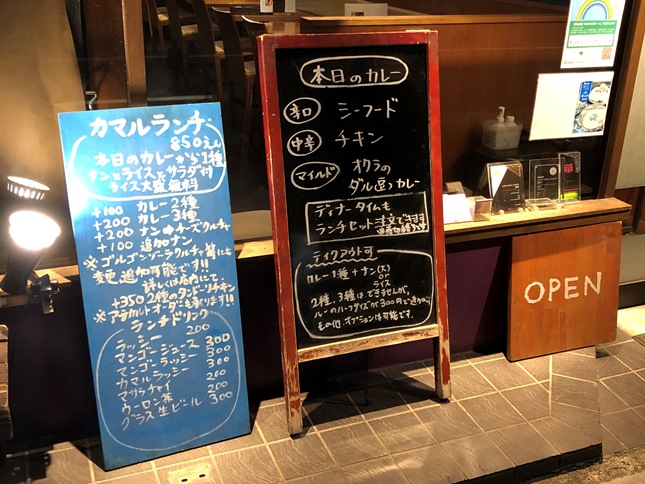 カマルランチ
850えん
本日のカレーから1種
ナンとライスとサラダ付
ライス大盛無料
+100 カレー2種
+200 カレー3種
+200 ナン⇒チーズクルチャ
+100 追加ナン
※ゴルゴンゾーラクルチャ等にも
変更追加可能です!!
詳しくは店内にて
+350 2種のタンドリチキン
※アラカルトオーダーも承ります!!
ランチドリンク
ラッシー 200
マンゴージュース 300
マンゴーラッシー 300
カマルラッシー 300
マサラチャイ 200
ウーロン茶 200
グラス生ビール 300
本日のカレー
辛口 シーフード
中辛 チキン
マイルド オクラの
ダル(豆)カレー
ディナータイムも
ランチセット注文できます
テイクアウト可
カレー1種+ナン(大)
or
ライス
2種、3種はできませんが、
ルーのハーフサイズが300円で追加可
その他、オプションは可能です。
OPEN